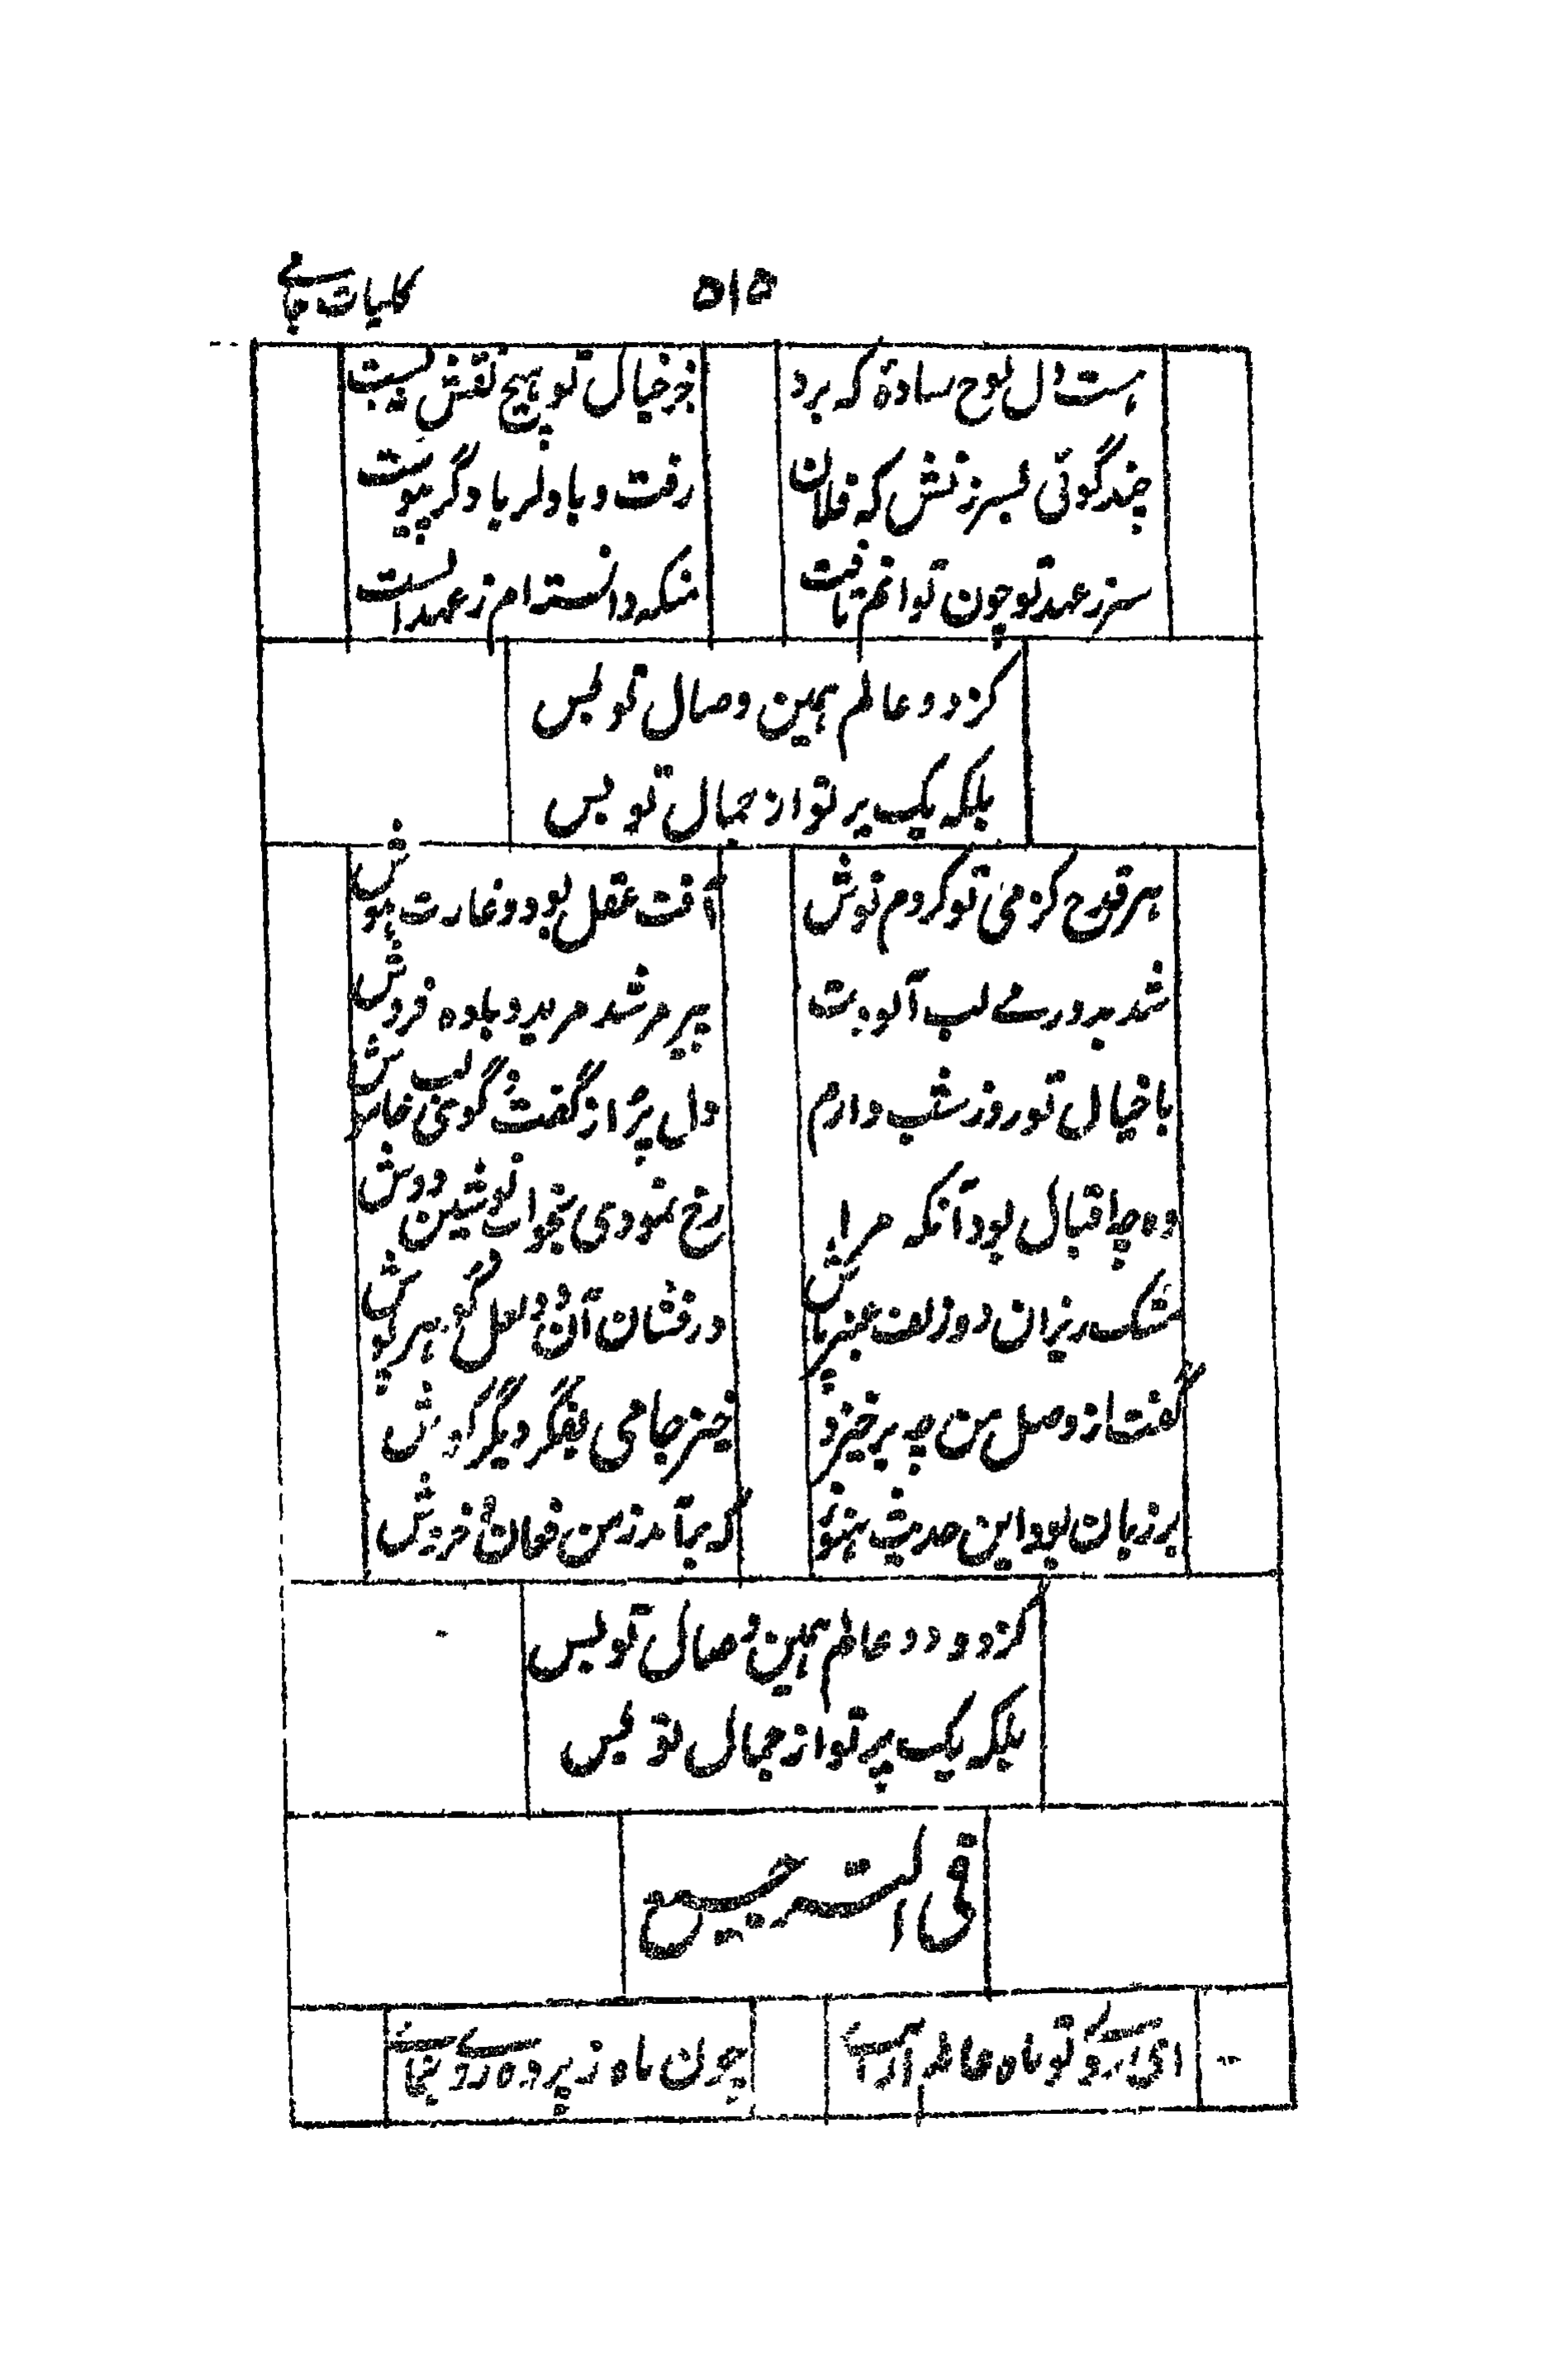 کلیات جامے
۵۱۵
ہست دل لوح سادۂ کہ برد
جز خیال تو ہیچ نقش نبست
چند گوئی بسرزنش کہ فلان
رفت و با دلربا دگر پیوست
سر ز عہد تو چون توانم تافت
منکہ دانستہ ام ز عہد الست
کز دو عالم ہمین وصال تو بس
بلکہ یک پرتو از جمال تو بس
ہر قدح کز می تو کردم نوش
آفت عقل بود و غارت ہوش
شد بدور مے لب آلودت
پیر مرشد مرید بادہ فروش
با خیال تو روز شب دارم
دل پر از گفت گوی لب خاموش
وہ چہ اقبال بود آنکہ مرا
رخ نمودی بخواب نوشین دوش
مشک ریزان دو زلف عنبر پاش
در فشان آن دو لعل گوہر پوش
گفت از وصل من چہ برخیزد
خیز جامی بفکر دیگر کوش
بر زبان بود این حدیث ہنوز
کہ برآمد ز من فغان و خروش
کز دو دو عالم ہمین وصال تو بس
بلکہ یک پرتو از جمال تو بس
فی الترجیع
ای روے تو ماہ عالم آرائے
چون ماہ ز پردہ روے بنمائے